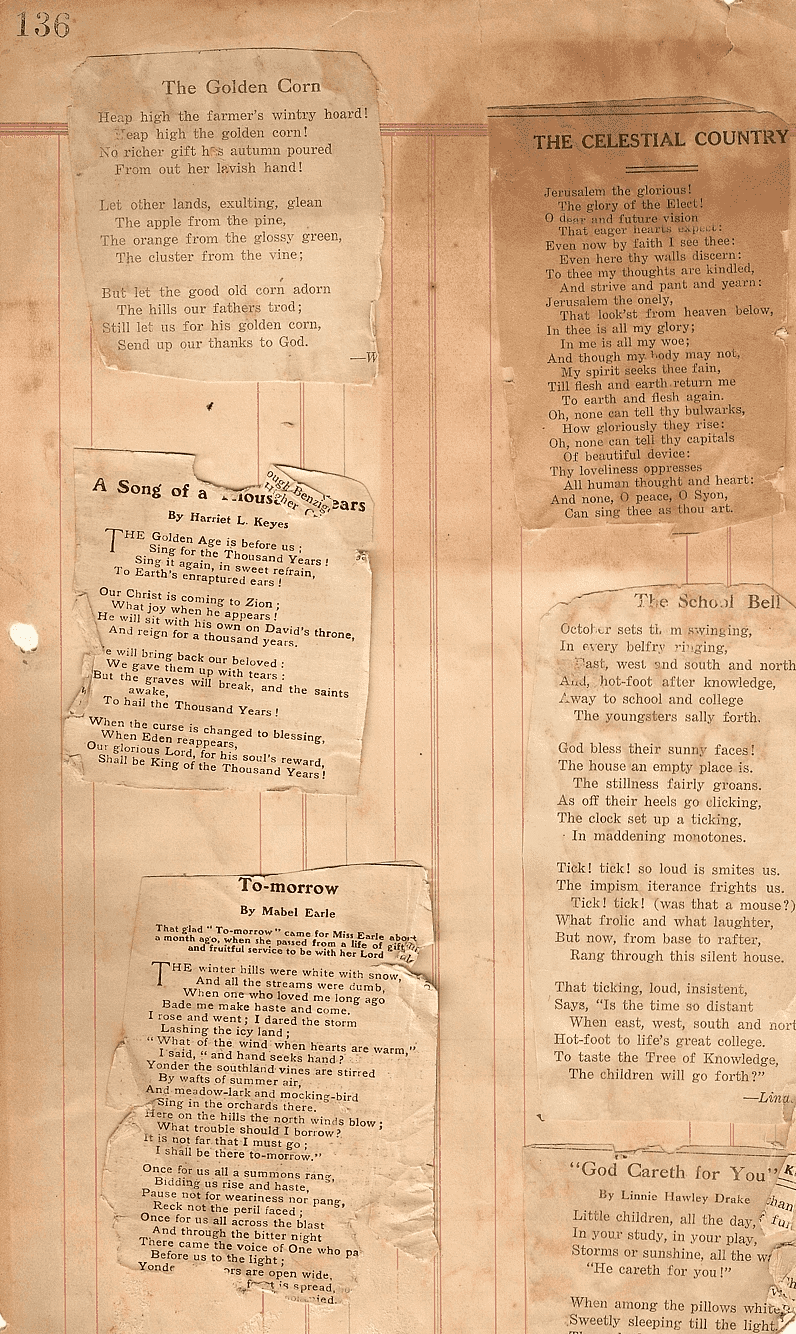 136
The Golden Corn
Heap high the farmer's wintry hoard!
Heap high the golden corn!
No richer gift has autumn poured
From out her lavish hand!
Let other lands, exulting, glean
The apple from the pine,
The orange from the glossy green,
The cluster from the vine;
But let the good old corn adorn
The hills our fathers trod;
Still let us for his golden corn,
Send up our thanks to God.
—W
A Song of a Thousand Years
ough Benzig
Higher C
By Harriet L. Keyes
THE Golden Age is before us;
Sing for the Thousand Years!
Sing it again, in sweet refrain,
To Earth's enraptured ears!
Our Christ is coming to Zion;
What joy when he appears!
He will sit with his own on David's throne,
And reign for a thousand years.
e will bring back our beloved:
We gave them up with tears:
But the graves will break, and the saints
awake,
To hail the Thousand Years!
When the curse is changed to blessing,
When Eden reappears,
Our glorious Lord, for his soul's reward,
Shall be King of the Thousand Years!
To-morrow
By Mabel Earle
That glad "To-morrow" came for Miss Earle about
a month ago, when she passed from a life of gift
and fruitful service to be with her Lord
THE winter hills were white with snow,
And all the streams were dumb,
When one who loved me long ago
Bade me make haste and come.
I rose and went; I dared the storm
Lashing the icy land;
"What of the wind when hearts are warm,"
I said, "and hand seeks hand?
Yonder the southland vines are stirred
By wafts of summer air,
And meadow-lark and mocking-bird
Sing in the orchards there.
Here on the hills the north winds blow;
What trouble should I borrow?
It is not far that I must go;
I shall be there to-morrow."
Once for us all a summons rang,
Bidding us rise and haste,
Pause not for weariness nor pang,
Reck not the peril faced;
Once for us all across the blast
And through the bitter night
There came the voice of One who pa
Before us to the light;
Yonde ors are open wide,
is spread,
ied.
THE CELESTIAL COUNTRY
Jerusalem the glorious!
The glory of the Elect!
O dear and future vision
That eager hearts expect:
Even now by faith I see thee:
Even here thy walls discern:
To thee my thoughts are kindled,
And strive and pant and yearn:
Jerusalem the onely,
That look'st from heaven below,
In thee is all my glory;
In me is all my woe;
And though my body may not,
My spirit seeks thee fain,
Till flesh and earth return me
To earth and flesh again.
Oh, none can tell thy bulwarks,
How gloriously they rise:
Oh, none can tell thy capitals
Of beautiful device:
Thy loveliness oppresses
All human thought and heart:
And none, O peace, O Syon,
Can sing thee as thou art.
The School Bell
October sets them swinging,
In every belfry ringing,
East, west and south and north
And, hot-foot after knowledge,
Away to school and college
The youngsters sally forth.
God bless their sunny faces!
The house an empty place is.
The stillness fairly groans.
As off their heels go clicking,
The clock set up a ticking,
In maddening monotones.
Tick! tick! so loud is smites us.
The impism iterance frights us.
Tick! tick! (was that a mouse?)
What frolic and what laughter,
But now, from base to rafter,
Rang through this silent house.
That ticking, loud, insistent,
Says, "Is the time so distant
When east, west, south and nort
Hot-foot to life's great college.
To taste the Tree of Knowledge,
The children will go forth?"
—Lina
"God Careth for You"
By Linnie Hawley Drake
Little children, all the day,
In your study, in your play,
Storms or sunshine, all the w
"He careth for you!"
When among the pillows white
Sweetly sleeping till the light